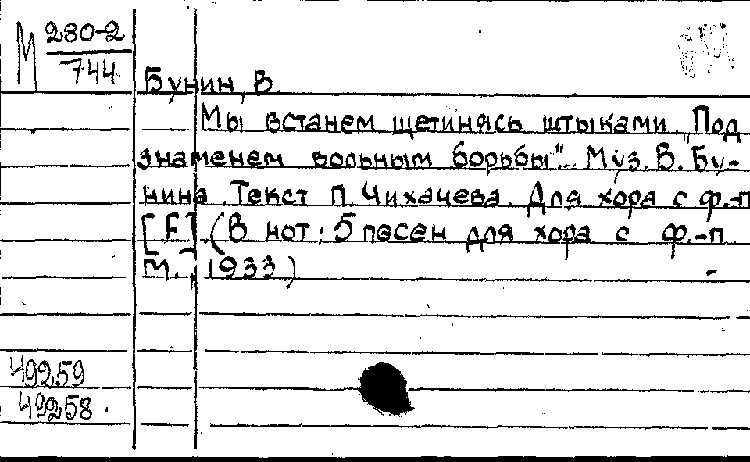 М 280-2
744
Бунин, В.
Мы встанем щетинясь штыками. "Под
знаменем вольным борьбы". Муз. В. Бу-
нина. Текст П. Чихачева. Для хора с ф.-п
[F] (В нот: 5 песен для хора с ф.-п.
М., 1933)
49259
49258.